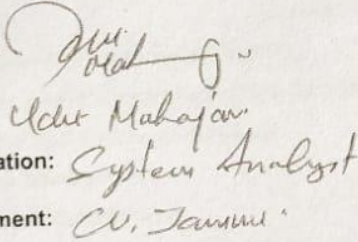 Udit Mahajan
ation: System Analyst
ment: CU, Jammu.